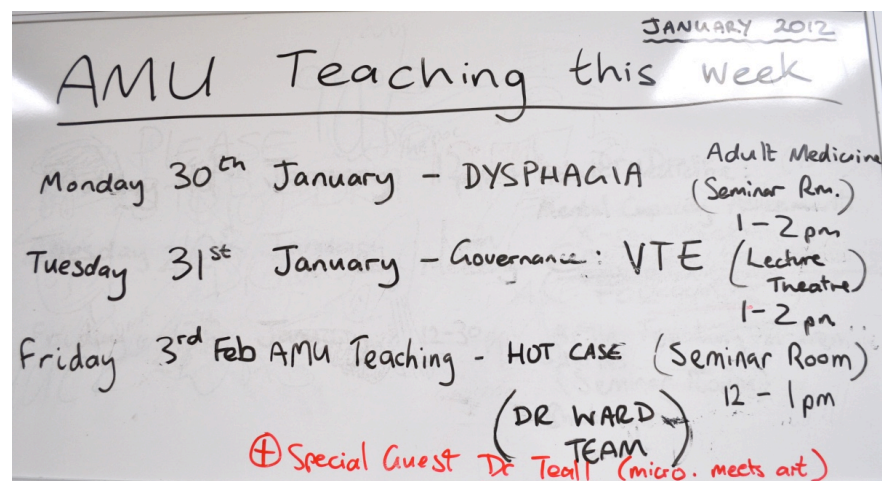 JANUARY 2012
AMU Teaching this week
Monday 30th January - DYSPHAGIA Adult Medicine (Seminar Rm.)
1-2 pm
Tuesday 31st January - Governance: VTE (Lecture Theatre)
1-2 pm
Friday 3rd Feb AMU Teaching - HOT CASE (Seminar Room)
12 - 1pm
(DR WARD TEAM)
⊕ Special Guest Dr Teall (micro. meets art)